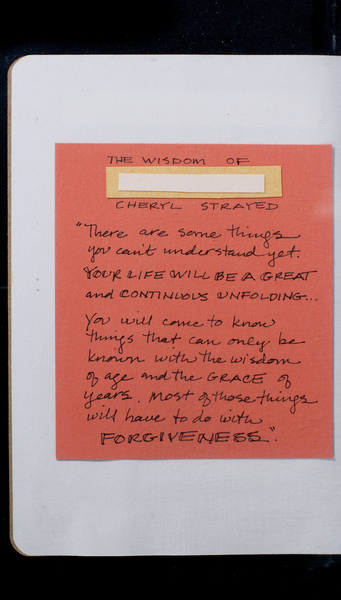 THE WISDOM OF
CHERYL STRAYED
"There are some things
you can't understand yet.
YOUR LIFE WILL BE A GREAT
and CONTINUOUS UNFOLDING...
You will come to know
things that can only be
known with the wisdom
of age and the GRACE of
years. Most of those things
will have to do with
FORGIVENESS".